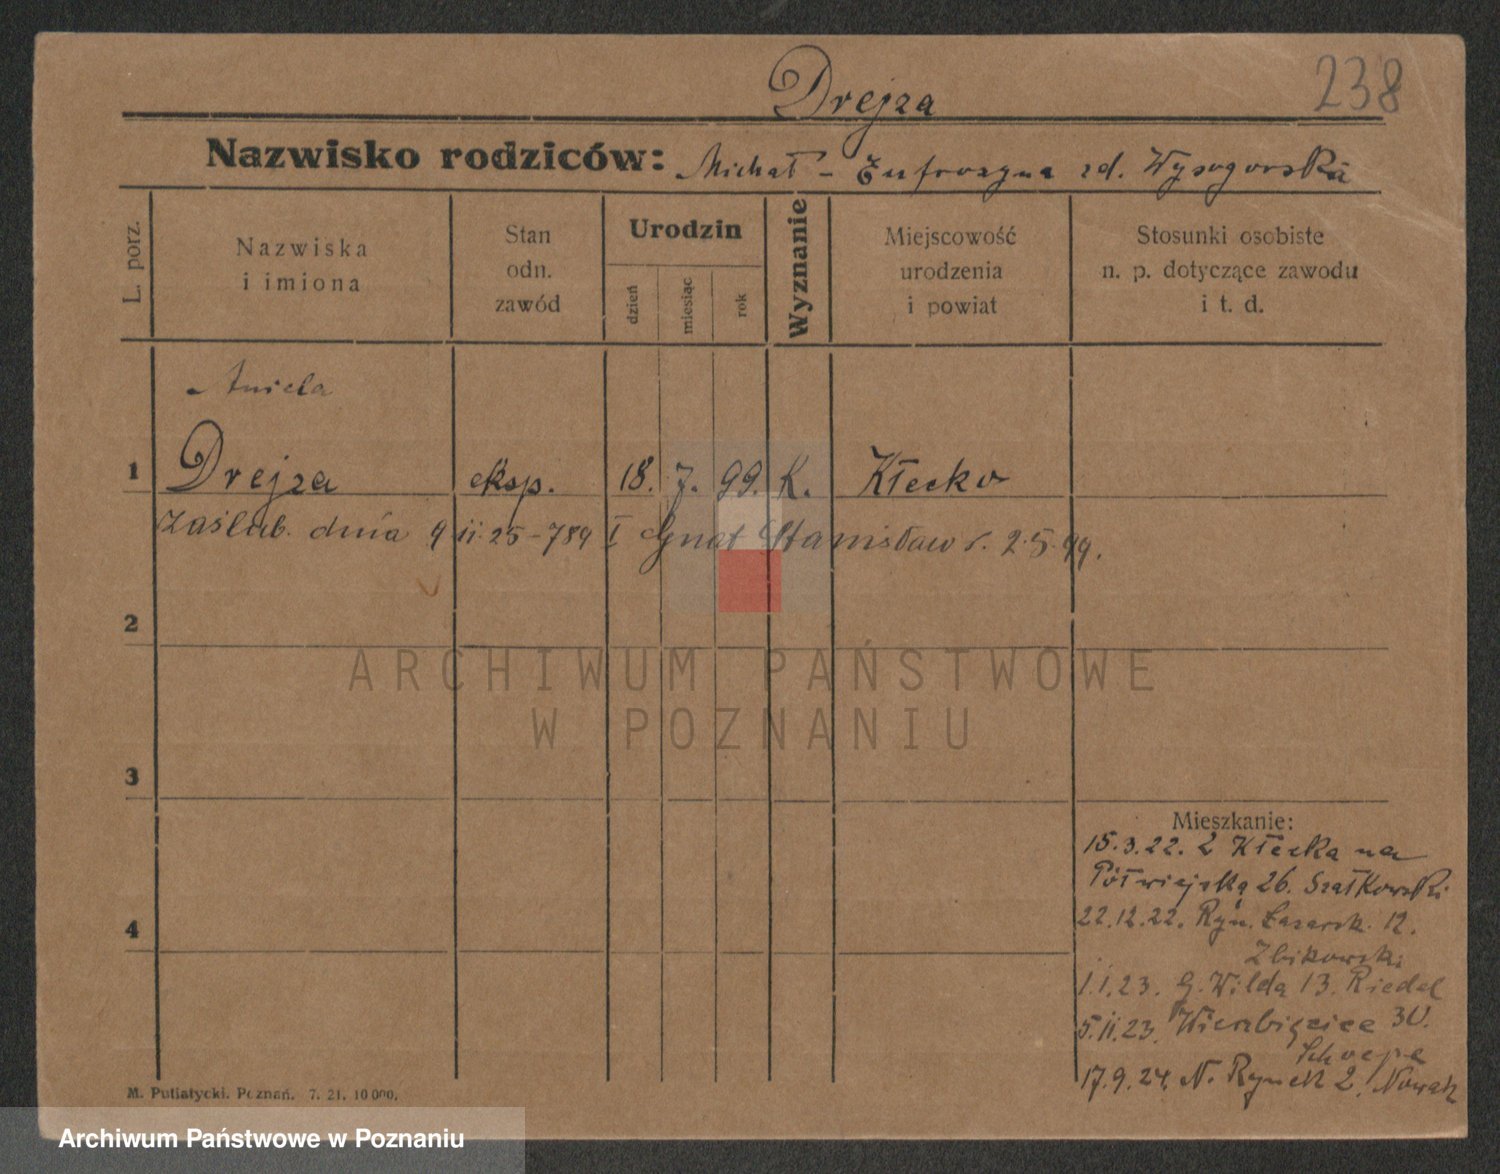 238
Drejza
Nazwisko rodziców: Michał - Eufrozyna zd. Wysogorska
L. porz.
Nazwiska
i imiona
Stan
odn.
zawód
Urodzin
dzień
miesiąc
rok
Wyznanie
Miejscowość
urodzenia
i powiat
Stosunki osobiste
n. p. dotyczące zawodu
i t. d.
Aniela
1 Drejza eksp. 18. 7. 99. K. Kłecko
Zaślub. dnia 9 11. 25 - 789 I Gnat Stanisław r. 2.5.99.
2
ARCHIWUM PAŃSTWOWE
W POZNANIU
3
4
Mieszkanie:
15.3.22. z Kłecka na
Półwiejską 26. Szałkowski
22.12.22. Ryn. Łazarsk. 12.
Zbikowski
1.1.23. G. Wilda 13. Riedel
5.11.23. Wierzbięcice 30.
17.9.24. N. Rynek 2. Nowak
M. Putiatycki. Poznań. 7. 21. 10 000.
Archiwum Państwowe w Poznaniu